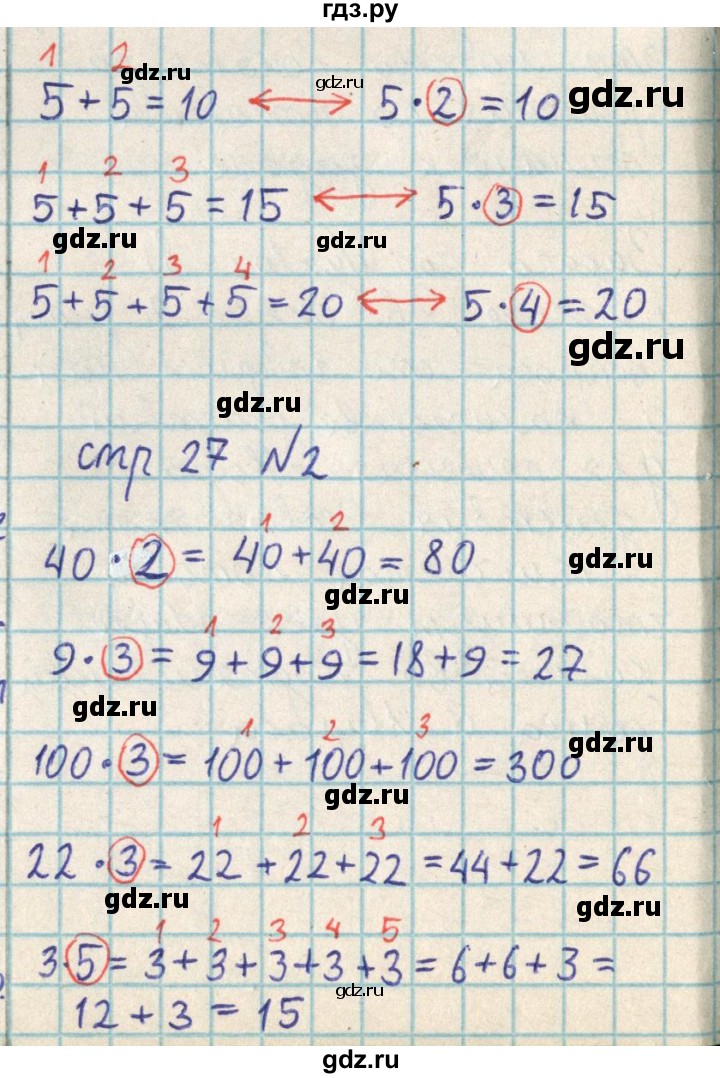 гдз.ру
1 2
gdz.ru
gdz.ru
gdz.ru
5 + 5 = 10 ⟷ 5 · 2 = 10
1 2 3
5 + 5 + 5 = 15 ⟷ 5 · 3 = 15
gdz.ru
gdz.ru
1 2 3 4
5 + 5 + 5 + 5 = 20 ⟷ 5 · 4 = 20
gdz.ru
gdz.ru
стр 27 №2
1 2
40 · 2 = 40 + 40 = 80
gdz.ru
gdz.ru
1 2 3
9 · 3 = 9 + 9 + 9 = 18 + 9 = 27
gdz.ru
1 2 3
gdz.ru
100 · 3 = 100 + 100 + 100 = 300
gdz.ru
1 2 3
22 · 3 = 22 + 22 + 22 = 44 + 22 = 66
gdz.ru
gdz.ru
1 2 3 4 5
3 · 5 = 3 + 3 + 3 + 3 + 3 = 6 + 6 + 3 =
gdz.ru
12 + 3 = 15
gdz.ru